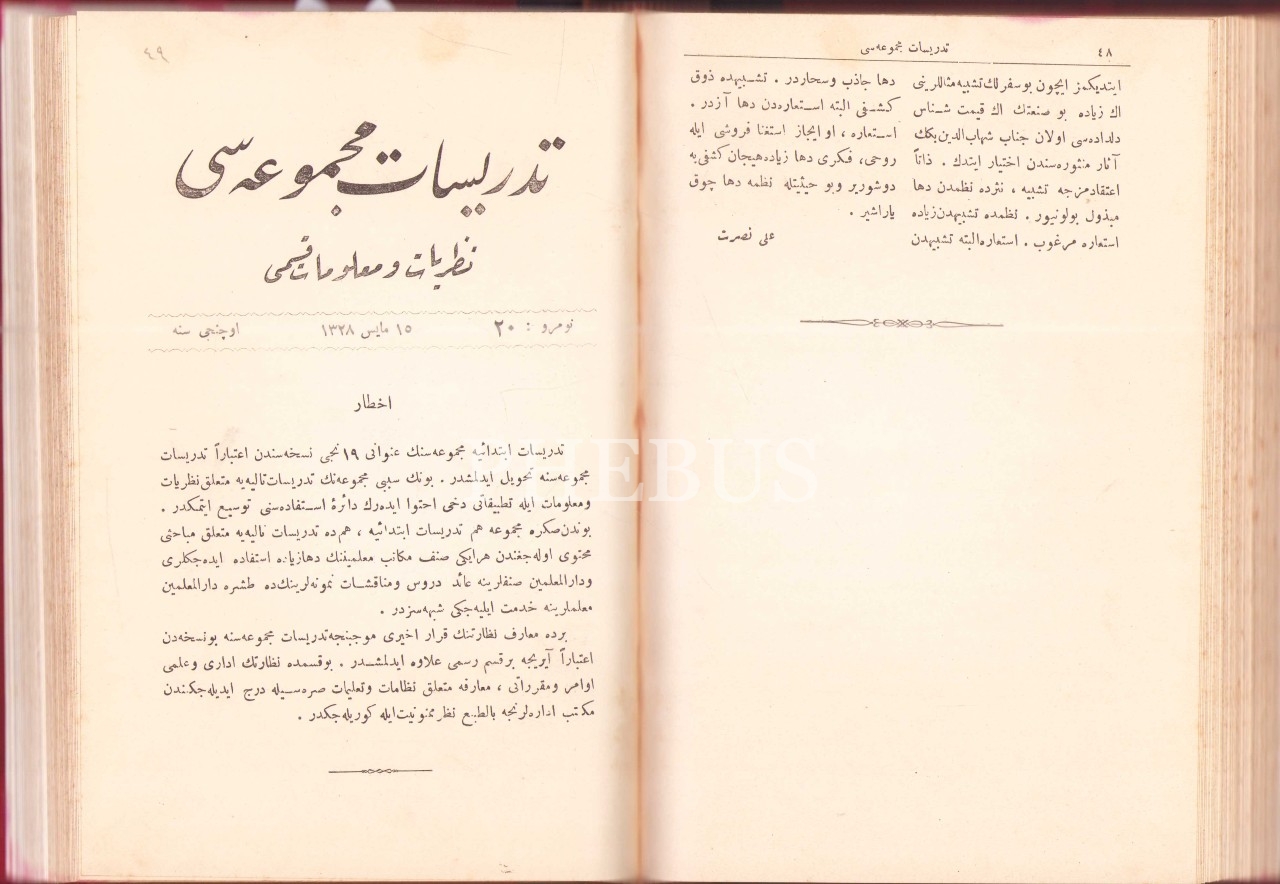 ٤٨
تدريسات مجموعه‌سی
ايتديكمز ايچون بوسفرلك تشبيه مثاللرينی
اك زياده بو صنعتك اك قيمت شناس
دلداده‌سی اولان جناب شهاب‌الدين‌بكك
آثار منثوره‌سندن اختيار ايتدك . ذاتاً
اعتقادمزجه تشبيه ، نثرده نظمدن دها
مبذول بولونيور . نظمده تشبيهدن زياده
استعاره مرغوب . استعاره البته تشبيهدن
دها جاذب وسحاردر . تشبيهده ذوق
كشفی البته استعاره‌دن دها آزدر .
استعاره ، او ايجاز استغنا فروشی ايله
روحی ، فكری دها زياده هيجان كشفی‌يه
دوشورير وبو حيثيتله نظمه دها چوق
ياراشير .
علی نصرت
٤٩
تدريسات مجموعه‌سی
نظريات ومعلومات قسمی
نومرو : ٢٠
١٥ مايس ١٣٢٨
اوچنجی سنه
اخطار
تدريسات ابتدائيه مجموعه‌سنك عنوانی ١٩ نجی نسخه‌سندن اعتباراً تدريسات
مجموعه‌سنه تحويل ايدلمشدر . بونك سببی مجموعه‌نك تدريسات تاليه‌يه متعلق نظريات
ومعلومات ايله تطبيقاتی دخی احتوا ايده‌رك دائرۀ استفاده‌سنی توسيع ايتمكدر .
بوندن صكره مجموعه هم تدريسات ابتدائيه ، هم‌ده تدريسات تاليه‌يه متعلق مباحثی
محتوی اوله‌جغندن هرايكی صنف مكاتب معلمينك دهازياده استفاده ايده‌جكلری
ودارالمعلمين صنفلرينه عائد دروس ومناقشات نمونه‌لرينك‌ده طشره دارالمعلمين
معلملرينه خدمت ايليه‌جكی شبهه‌سزدر .
برده معارف نظارتنك قرار اخيری موجبنجه تدريسات مجموعه‌سنه بونسخه‌دن
اعتباراً آيريجه برقسم رسمی علاوه ايدلمشدر . بوقسمده نظارتك اداری وعلمی
اوامر ومقرراتی ، معارفه متعلق نظامات وتعليمات صره‌سيله درج ايديله‌جكندن
مكتب اداره‌لرنجه بالطبع نظر ممنونيت‌ايله كوريله‌جكدر .
PHEBUS